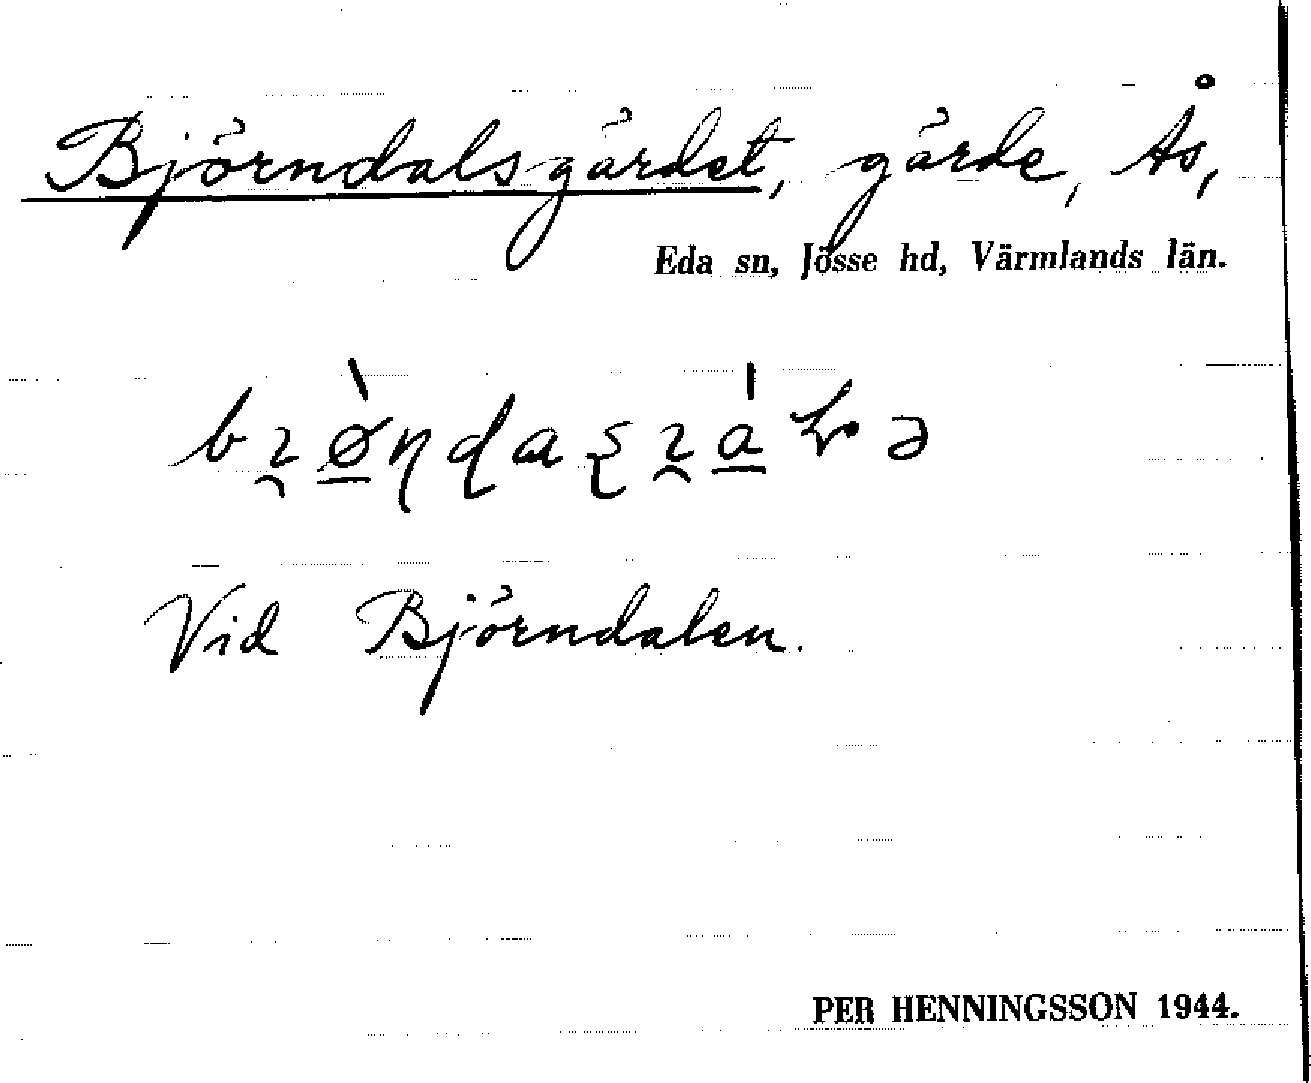 Björndalsgärdet, gärde, Ås,
Eda sn, Jösse hd, Värmlands län.
Vid Björndalen.
PER HENNINGSSON 1944.